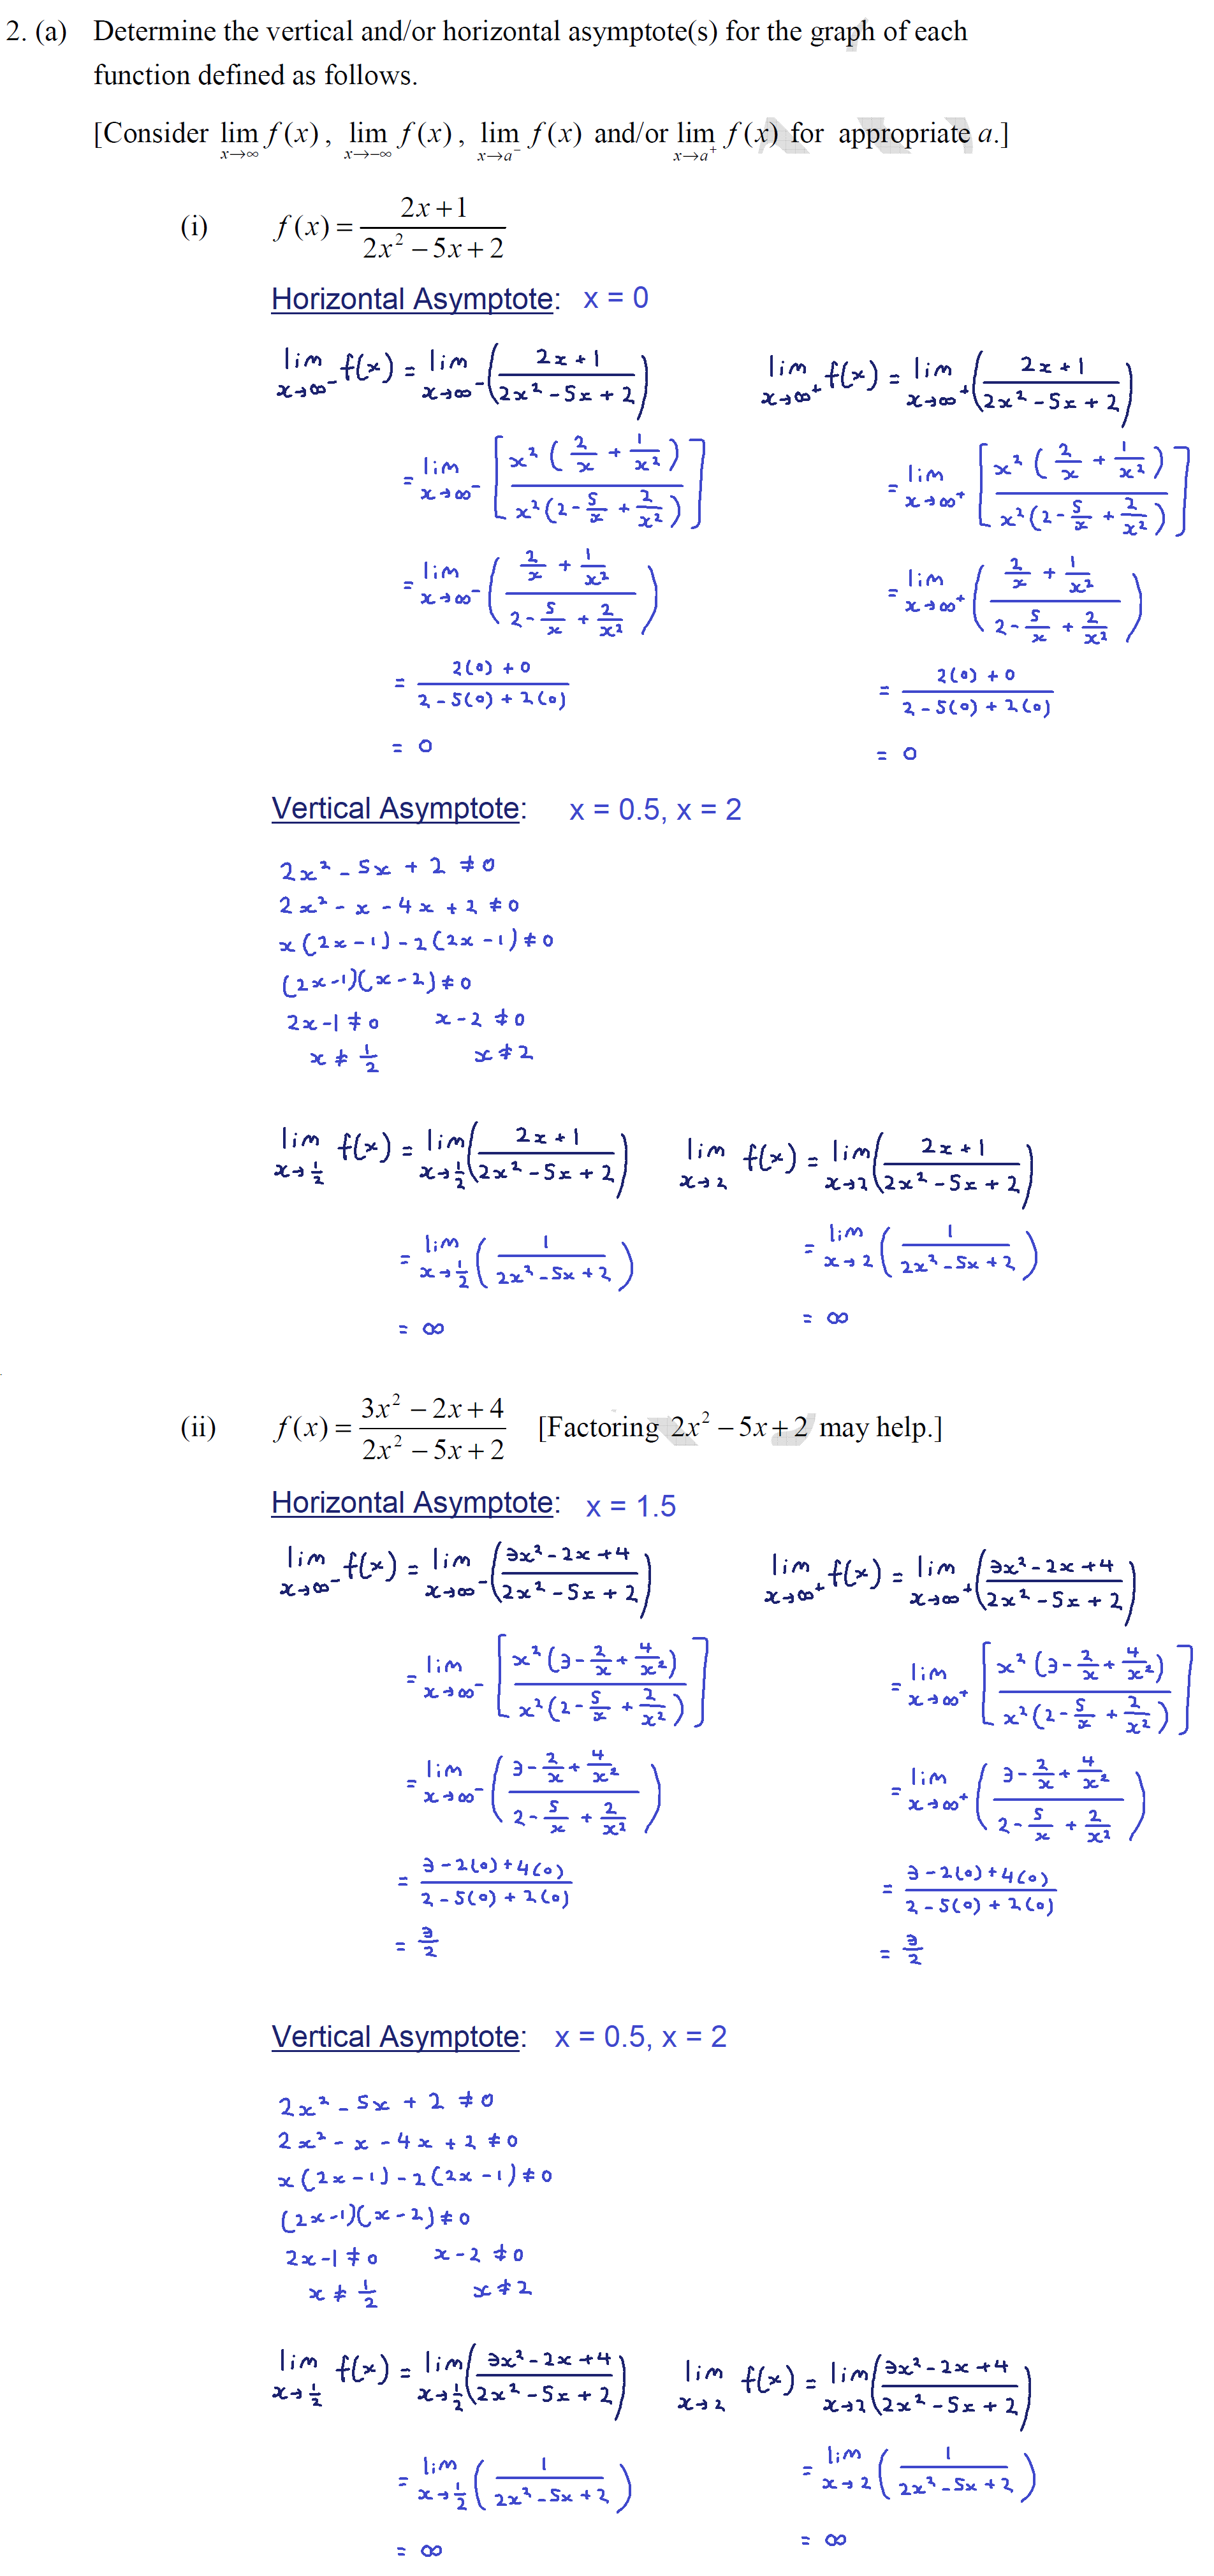 2. (a) Determine the vertical and/or horizontal asymptote(s) for the graph of each
function defined as follows.
[Consider lim_{x→∞} f(x), lim_{x→−∞} f(x), lim_{x→a⁻} f(x) and/or lim_{x→a⁺} f(x) for appropriate a.]
(i) f(x) = (2x+1)/(2x² − 5x + 2)
Horizontal Asymptote: x = 0
lim_{x→∞⁻} f(x) = lim_{x→∞⁻} ((2x+1)/(2x² − 5x + 2))
= lim_{x→∞⁻} [x²(2/x + 1/x²)/(x²(2 − 5/x + 2/x²))]
= lim_{x→∞⁻} ((2/x + 1/x²)/(2 − 5/x + 2/x²))
= (2(0) + 0)/(2 − 5(0) + 2(0))
= 0
lim_{x→∞⁺} f(x) = lim_{x→∞⁺} ((2x+1)/(2x² − 5x + 2))
= lim_{x→∞⁺} [x²(2/x + 1/x²)/(x²(2 − 5/x + 2/x²))]
= lim_{x→∞⁺} ((2/x + 1/x²)/(2 − 5/x + 2/x²))
= (2(0) + 0)/(2 − 5(0) + 2(0))
= 0
Vertical Asymptote: x = 0.5, x = 2
2x² − 5x + 2 ≠ 0
2x² − x − 4x + 2 ≠ 0
x(2x − 1) − 2(2x − 1) ≠ 0
(2x−1)(x−2) ≠ 0
2x−1 ≠ 0 x−2 ≠ 0
x ≠ 1/2 x ≠ 2
lim_{x→1/2} f(x) = lim_{x→1/2} ((2x+1)/(2x² − 5x + 2))
= lim_{x→1/2} (1/(2x² − 5x + 2))
= ∞
lim_{x→2} f(x) = lim_{x→2} ((2x+1)/(2x² − 5x + 2))
= lim_{x→2} (1/(2x² − 5x + 2))
= ∞
(ii) f(x) = (3x² − 2x + 4)/(2x² − 5x + 2) [Factoring 2x² − 5x + 2 may help.]
Horizontal Asymptote: x = 1.5
lim_{x→∞⁻} f(x) = lim_{x→∞⁻} ((3x² − 2x + 4)/(2x² − 5x + 2))
= lim_{x→∞⁻} [x²(3 − 2/x + 4/x²)/(x²(2 − 5/x + 2/x²))]
= lim_{x→∞⁻} ((3 − 2/x + 4/x²)/(2 − 5/x + 2/x²))
= (3 − 2(0) + 4(0))/(2 − 5(0) + 2(0))
= 3/2
lim_{x→∞⁺} f(x) = lim_{x→∞⁺} ((3x² − 2x + 4)/(2x² − 5x + 2))
= lim_{x→∞⁺} [x²(3 − 2/x + 4/x²)/(x²(2 − 5/x + 2/x²))]
= lim_{x→∞⁺} ((3 − 2/x + 4/x²)/(2 − 5/x + 2/x²))
= (3 − 2(0) + 4(0))/(2 − 5(0) + 2(0))
= 3/2
Vertical Asymptote: x = 0.5, x = 2
2x² − 5x + 2 ≠ 0
2x² − x − 4x + 2 ≠ 0
x(2x − 1) − 2(2x − 1) ≠ 0
(2x−1)(x−2) ≠ 0
2x−1 ≠ 0 x−2 ≠ 0
x ≠ 1/2 x ≠ 2
lim_{x→1/2} f(x) = lim_{x→1/2} ((3x² − 2x + 4)/(2x² − 5x + 2))
= lim_{x→1/2} (1/(2x² − 5x + 2))
= ∞
lim_{x→2} f(x) = lim_{x→2} ((3x² − 2x + 4)/(2x² − 5x + 2))
= lim_{x→2} (1/(2x² − 5x + 2))
= ∞